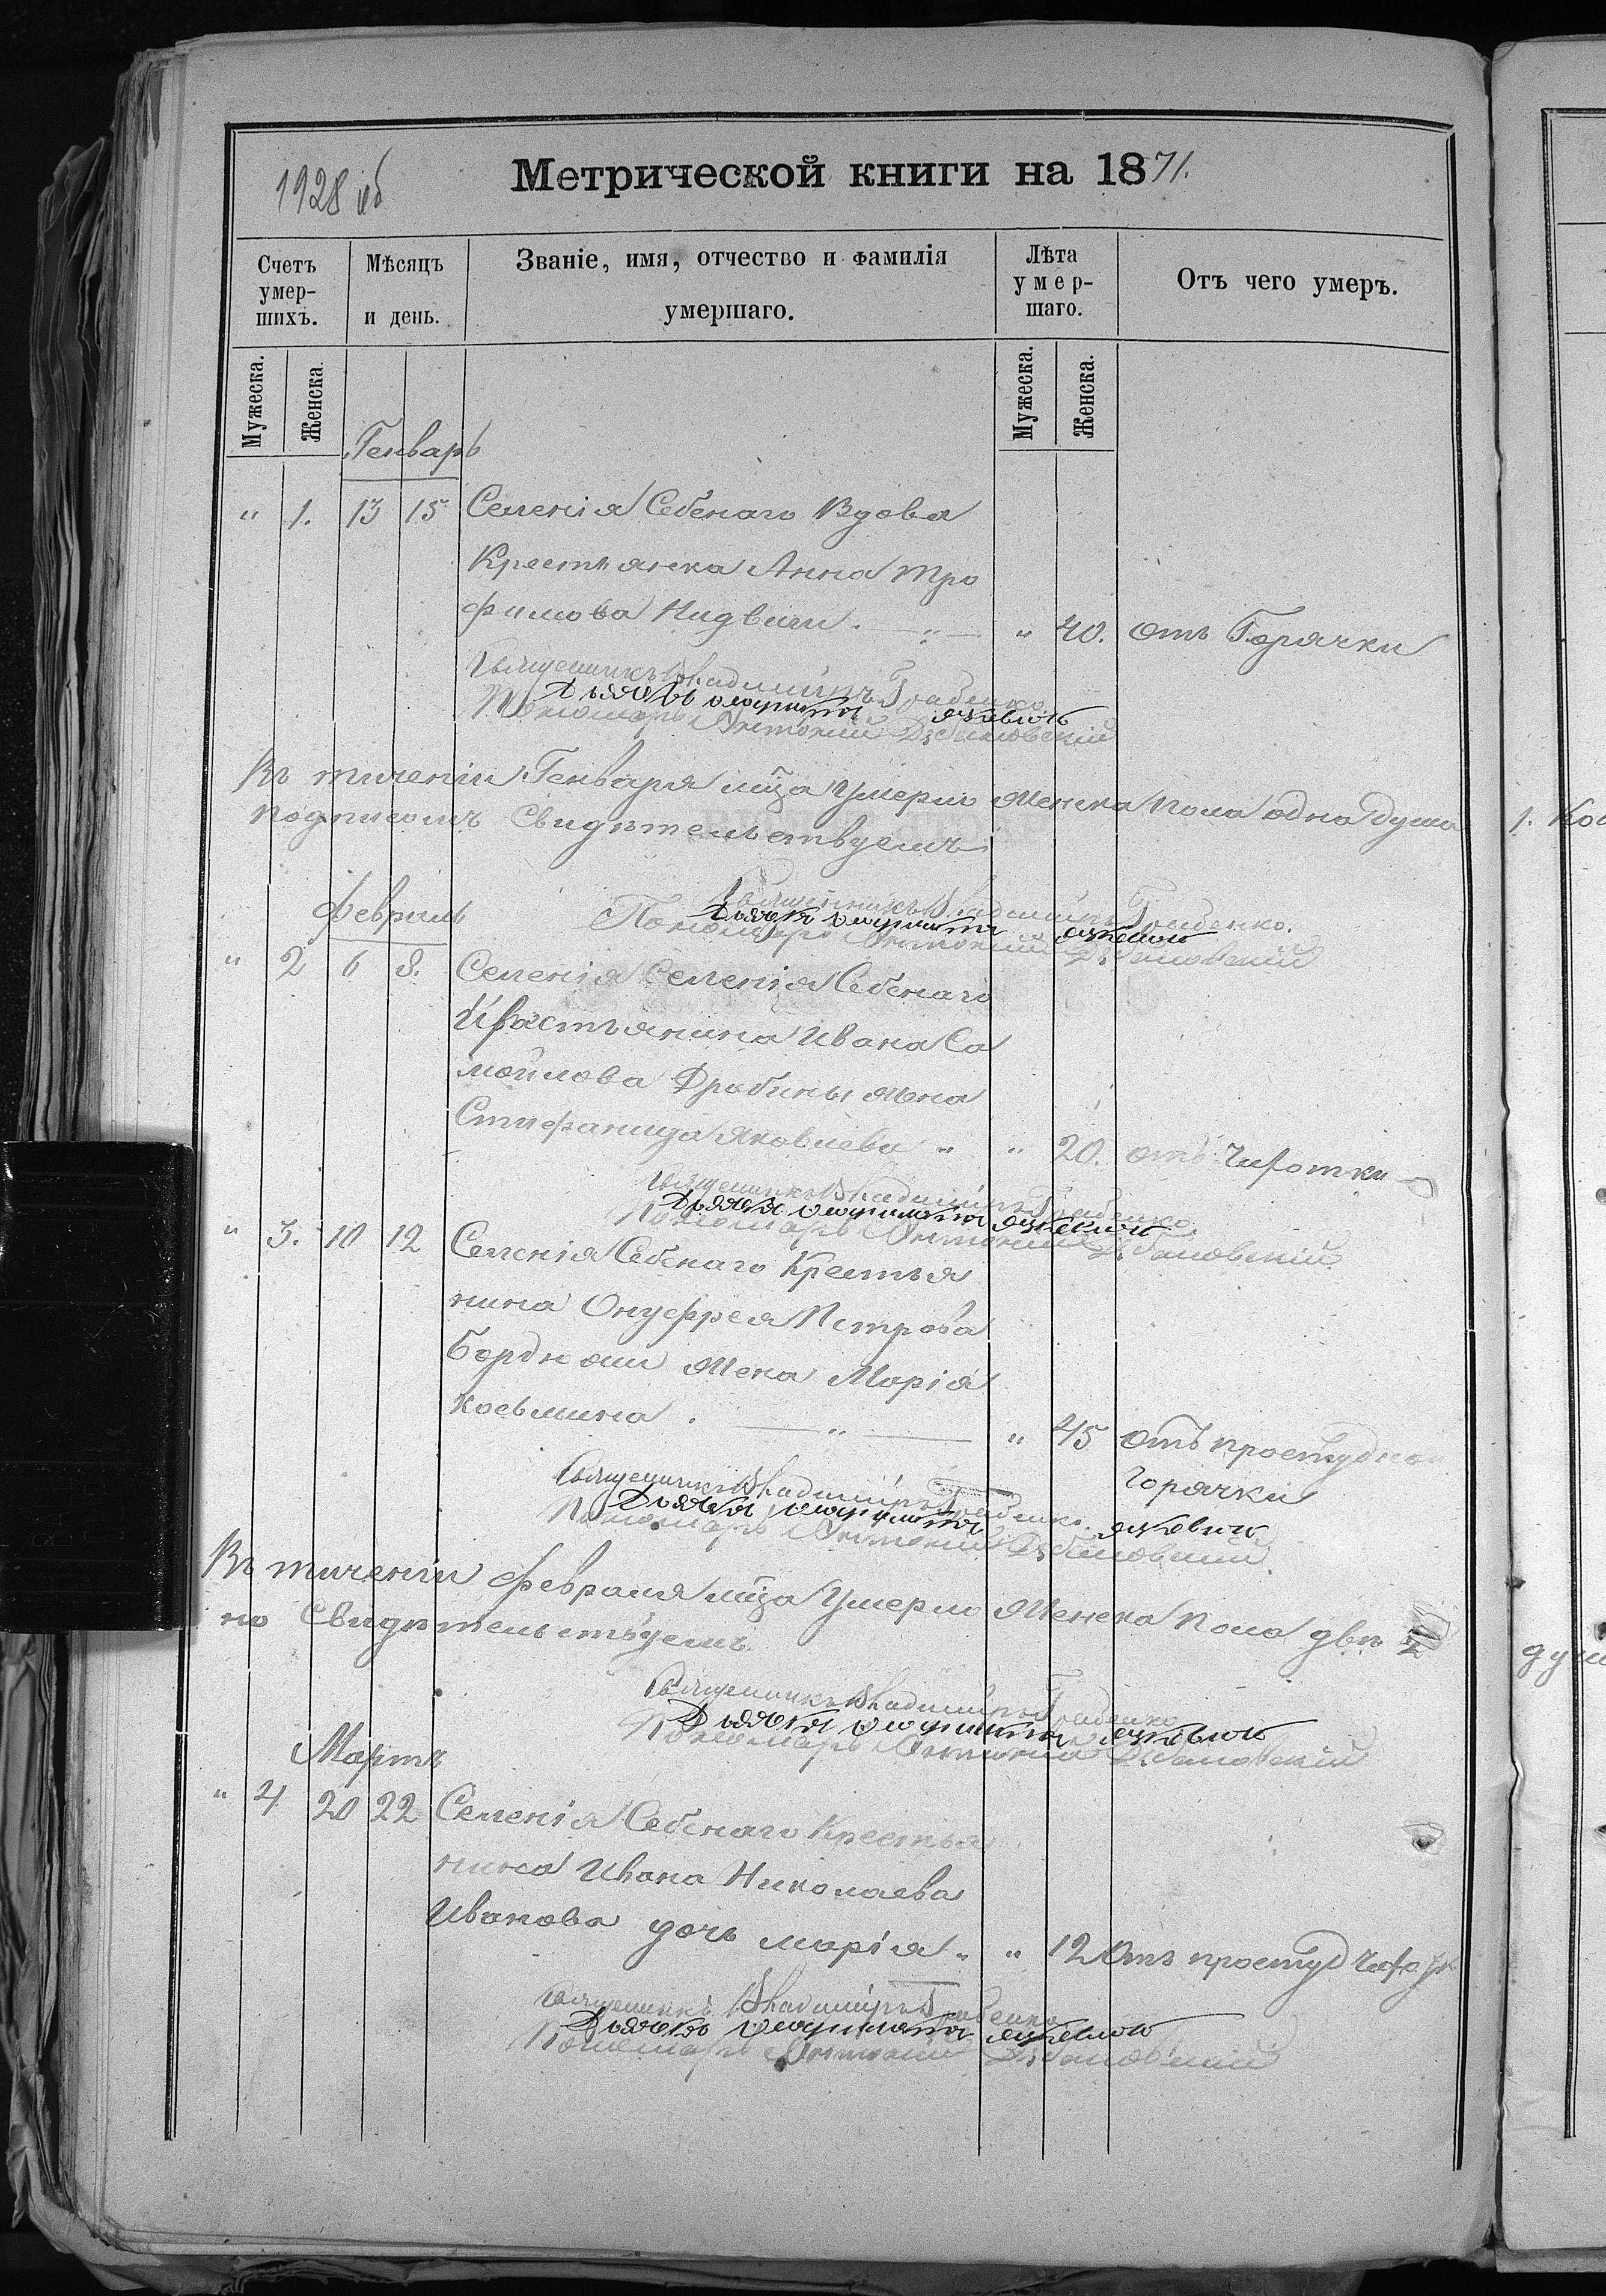 1928 об
Метрической книги на 1871.
Счетъ умер-шихъ.
Мѣсяцъ и день.
Званіе, имя, отчество и фамилія умершаго.
Лѣта умер-шаго.
Отъ чего умеръ.
Мужеска. Женска. Мужеска. Женска.
Генварь
" 1. 13 15 Селенія Себенаго Вдова
Крестьянка Анна Тро
фимова — " — " 40. отъ Горячки
Священникъ Владиміръ Грабенко
Дьячекъ
Пономарь Антоній
Въ тиченіи Генваря мца Умерло женска пола одна душа
подписомъ Свидѣтельствуемъ
Священникъ Владиміръ Грабенко.
Дьячекъ
Пономарь Антоній
Февраль
" 2 6 8. Селенія Селенія Себенаго
Крестьянина Ивана Са
мойлова Дробины жена
Стифанида Яковлева " " 20. отъ Чихотки
Священникъ Владиміръ Грабенко
Дьячекъ
Пономарь Антоній
" 3. 10 12 Селенія Себенаго Крестья
нина Онуфрея Петрова
жена Марія
Косьмина . — " — " 45 отъ простудной
Горячки
Священникъ Владиміръ Грабенко
Дьячекъ
Пономарь Антоній
Въ тиченіи Февраля мца Умерло женска пола двѣ 2
но Свидѣтельствуемъ
Священникъ Владиміръ Грабенко
Дьячекъ
Пономарь Антоній
Мартъ
" 4 20 22 Селенія Себенаго Крестья
нина Ивана Николаева
Иванова дочь Марія " " 12 Отъ простуд
Священникъ Владиміръ Грабенко
Дьячекъ
Пономарь Антоній
1.